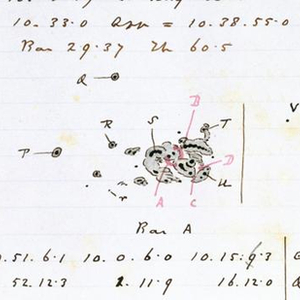 10.33.0 App = 10.38.55.0
Bar 29.37 Th 60.5
Q
D
R S T
V
P
D
r
A C U
Bar A
0.51.6.1 10.0.6.0 10.15.6.3
52.12.3 2.11.9 16.12.0